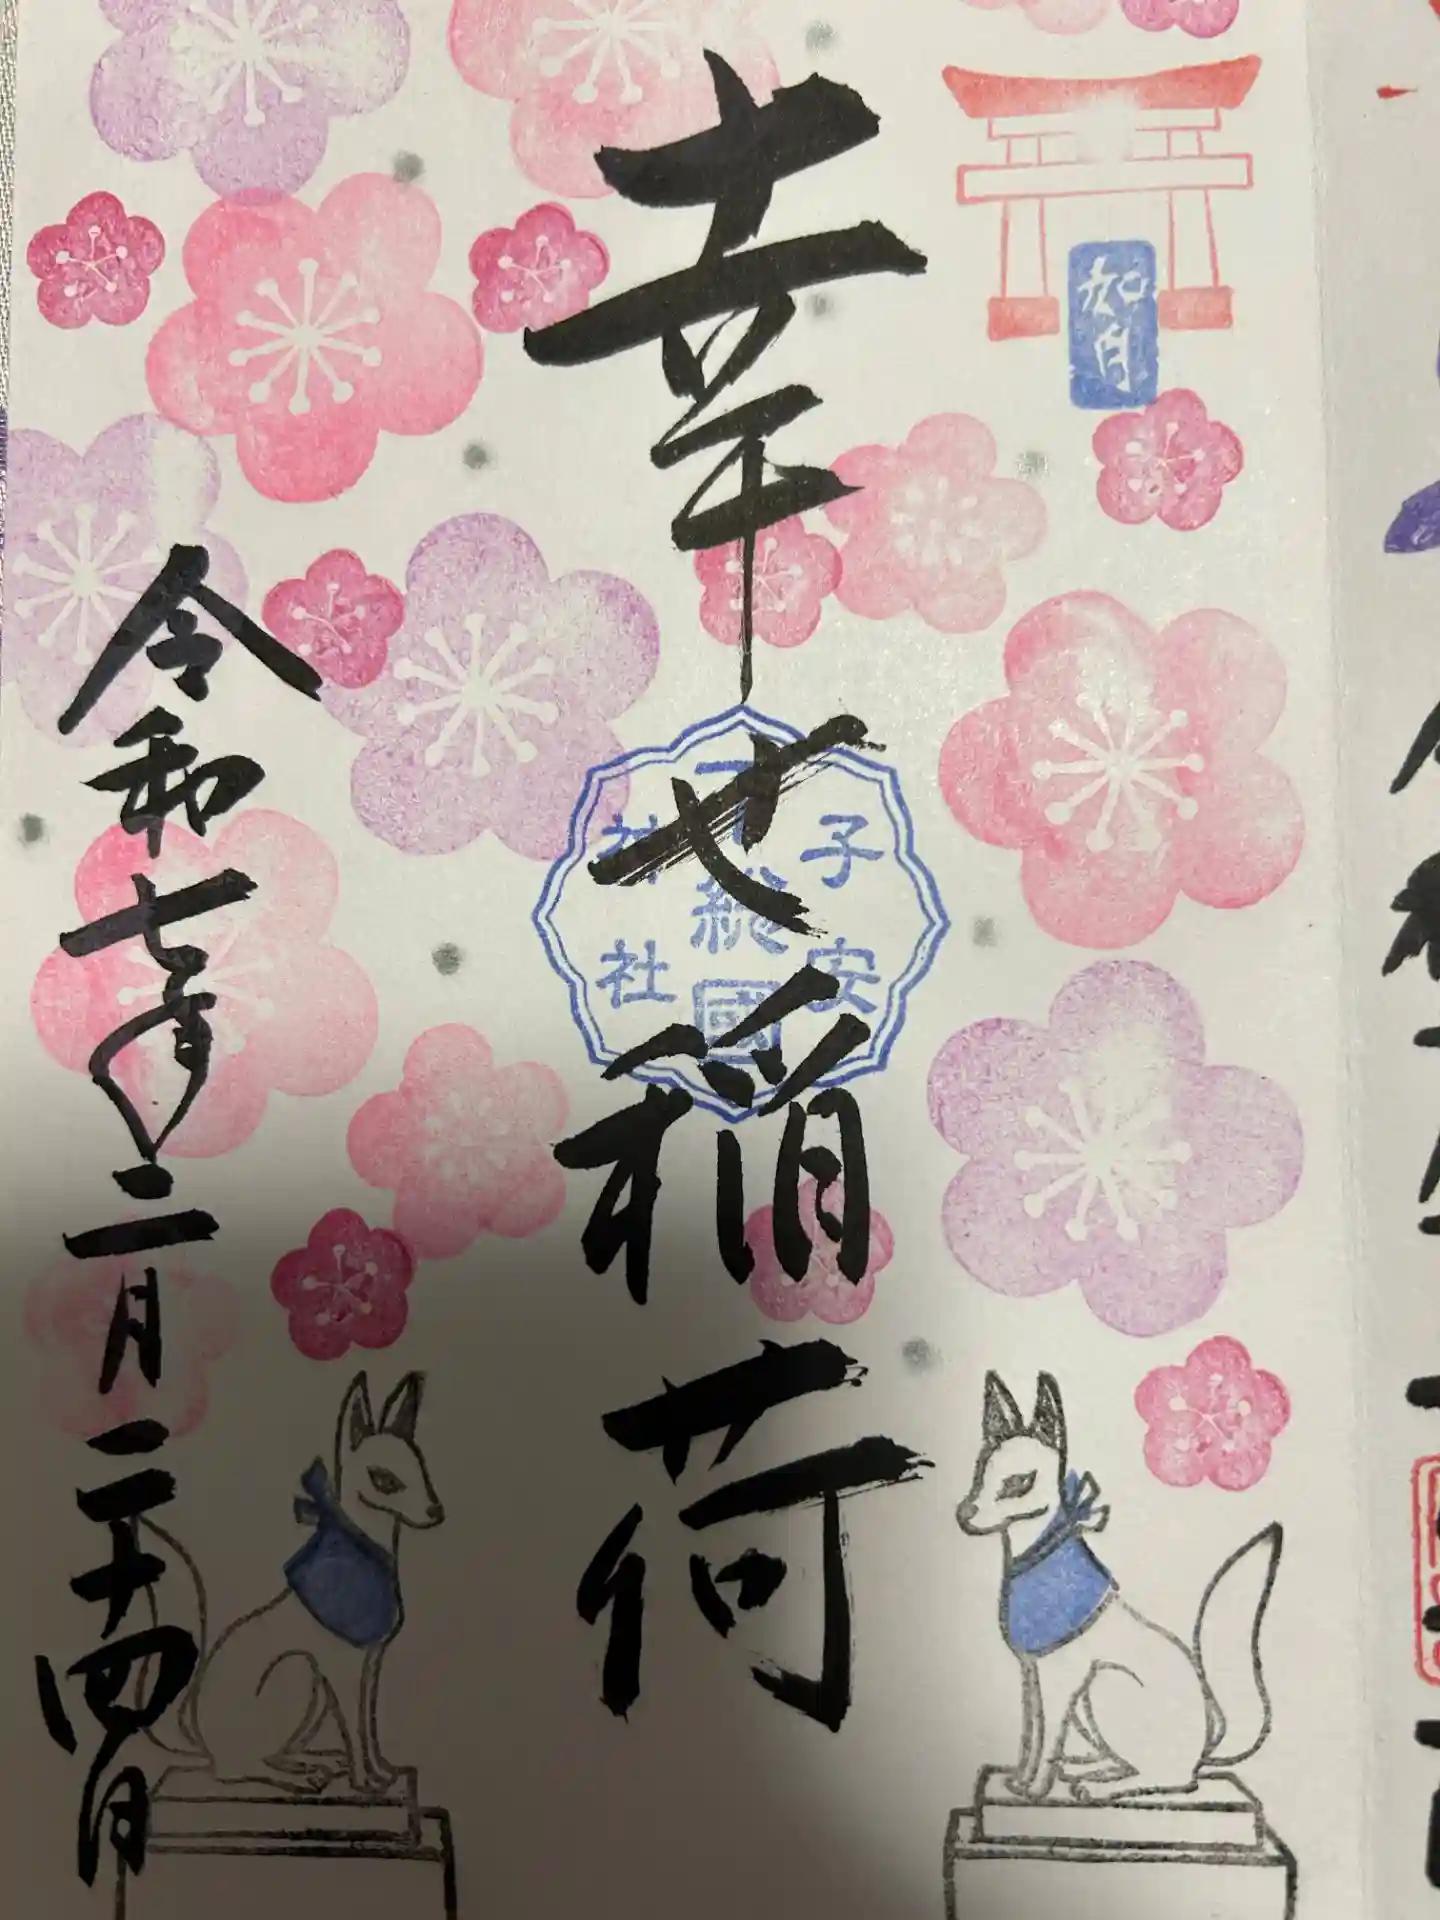 如月
幸せ稲荷
子安
下総國
神社
令和七年二月二十四日